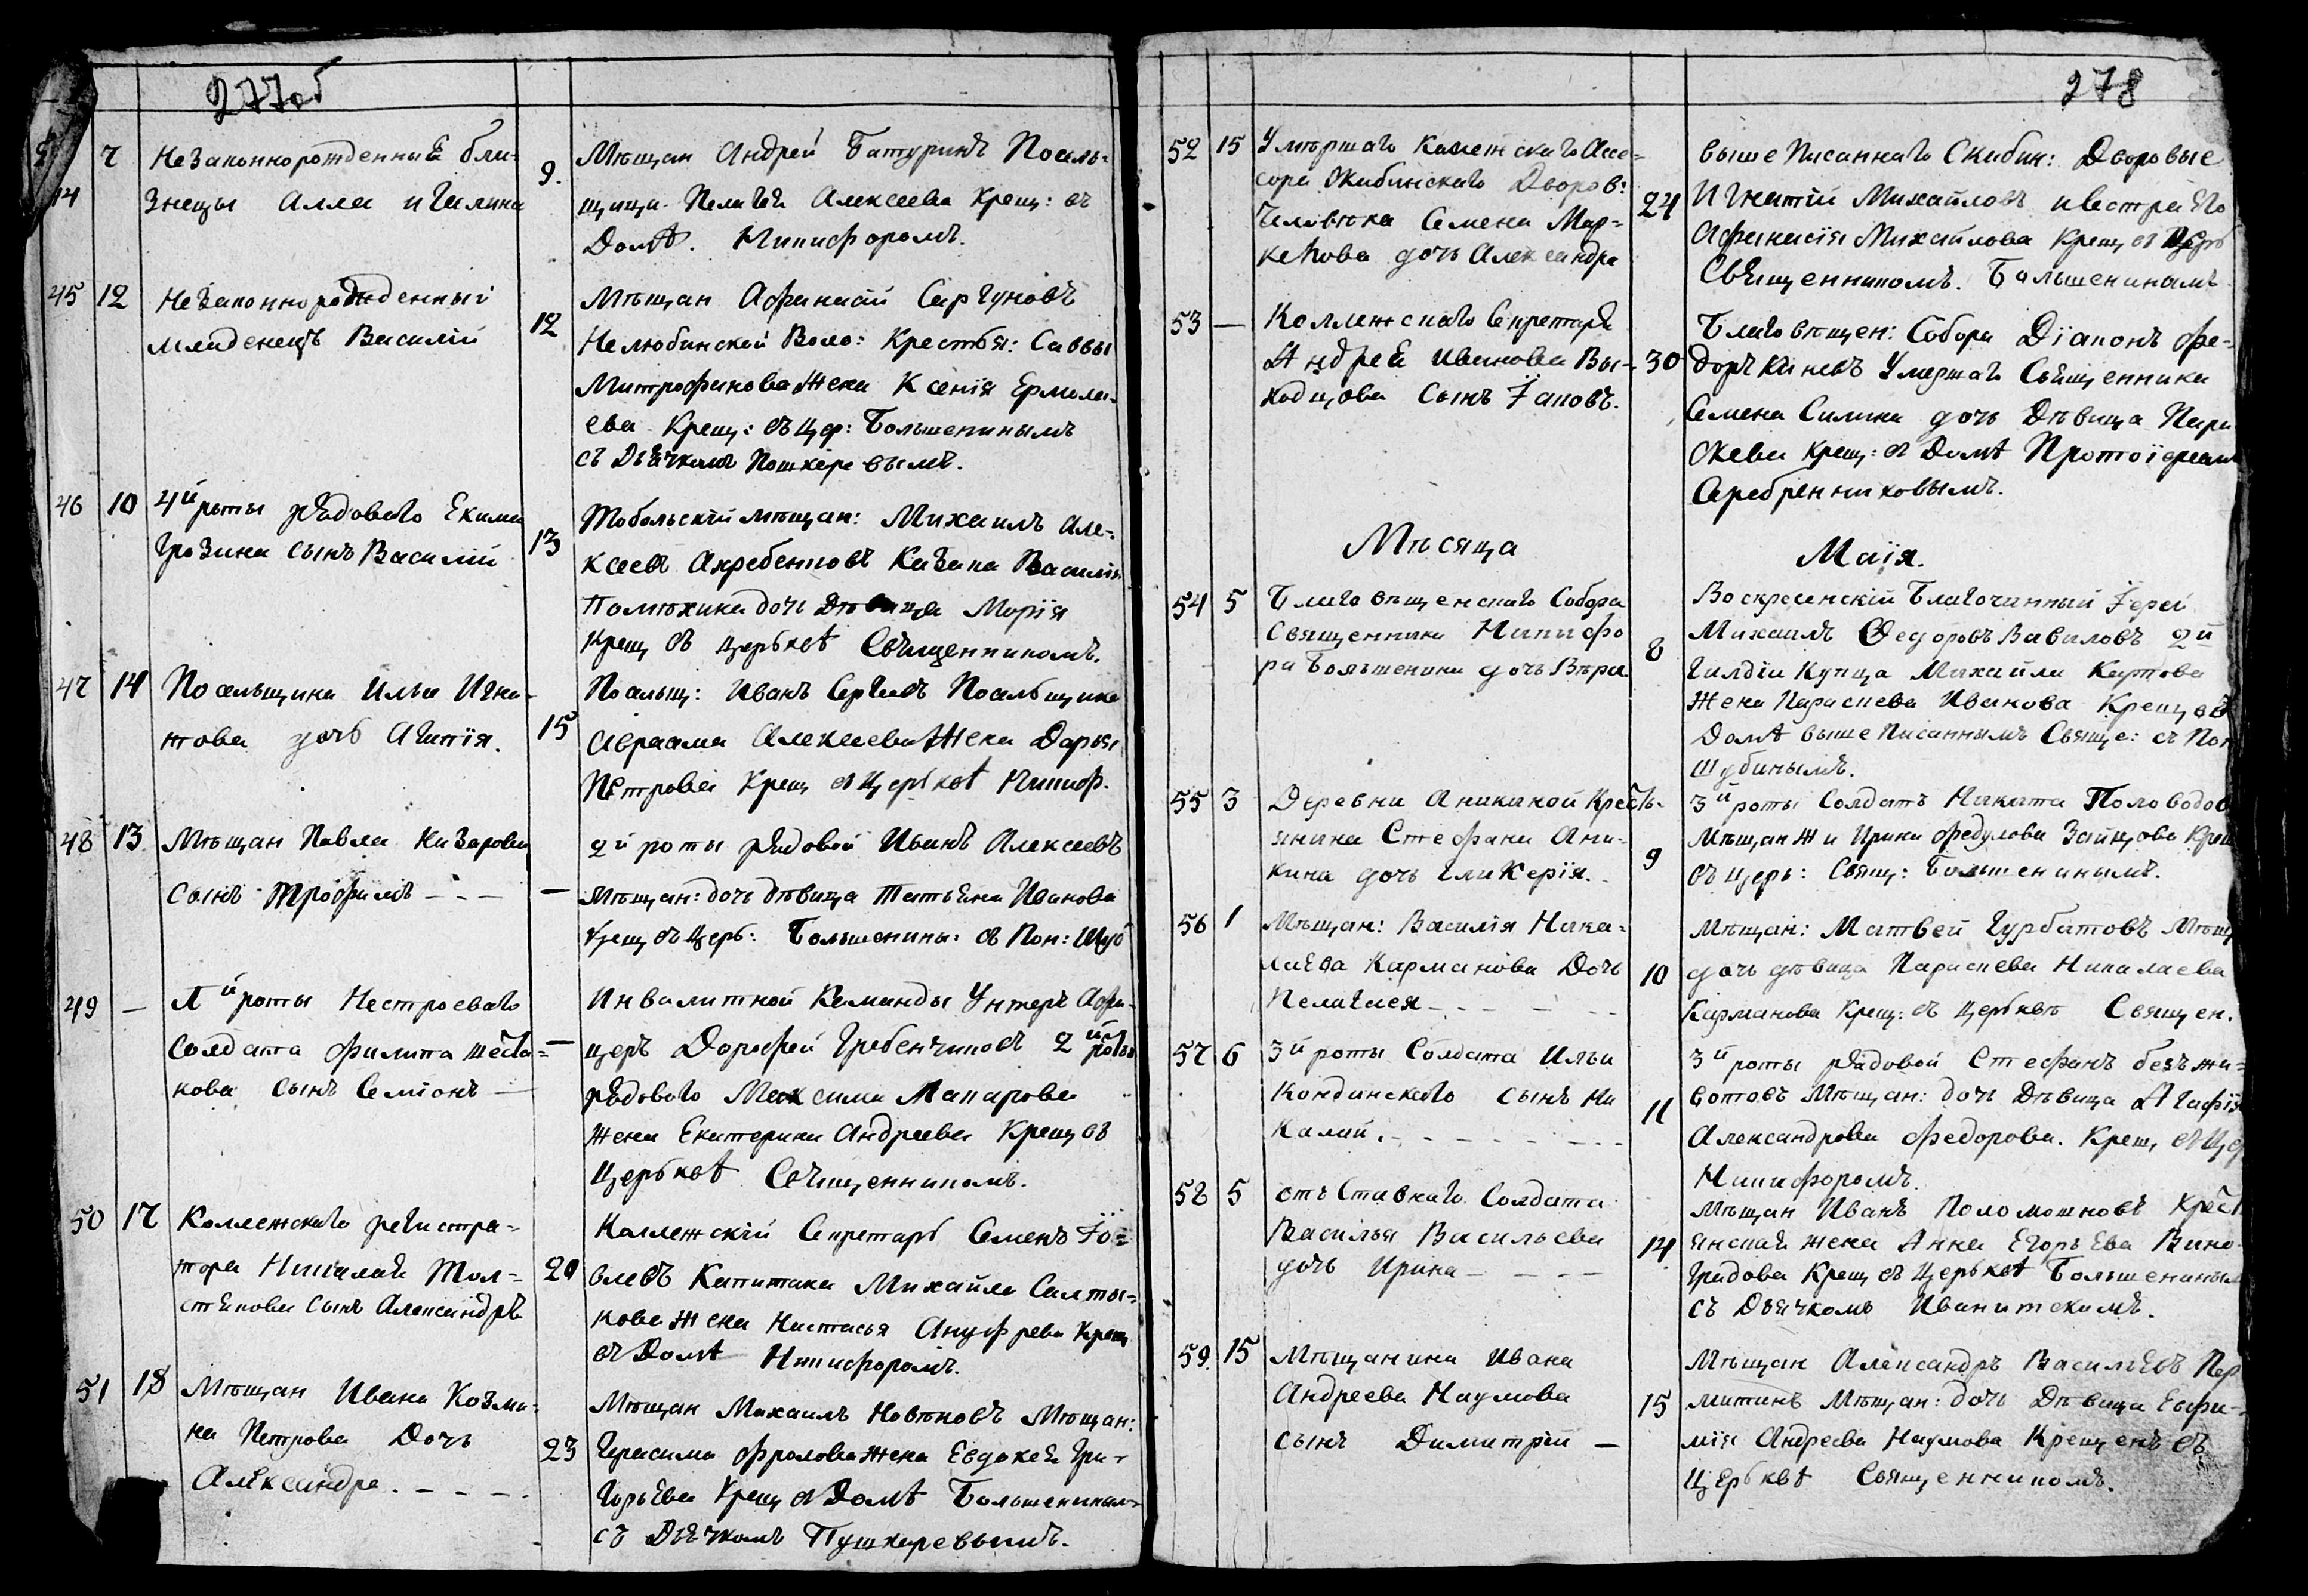 277об
7 Незаконнорожденныя бли-
14 знецы Алла и Галина
9. Мѣщан Андрей Батуринъ Посель-
щица Пелагея Алексеева Крещ: въ
Домѣ. Никифоромъ.
45 12 Незаконнорожденный
младенецъ Василій
12 Мѣщан Афанасій Сергуновъ
Нелюбинской Воло: Крестья: Саввы
Митрофанова Жена Ксенія Ермола-
ева Крещ: въ Цер: Большенинымъ
съ Дьячкомъ Пошкаревымъ.
46 10 4й роты рядоваго Екима
Грозина сынъ Василій
13 Тобольскій мѣщан: Михаилъ Але-
ксеевъ Казака Василія
дочь Дѣвица Марія
Крещ въ Церьквѣ Священникомъ.
47 14 Посельщика Ильи Игна-
това дочь Агапія.
15 Посельщ: Иванъ Сергѣевъ Посельщика
Авраама Алексеева Жена Дарья
Петрова Крещ въ Церьквѣ Никиф.
48 13 Мѣщан Павла Назарова
сынъ Трофимъ – – –
— 2й роты рядовой Иванъ Алексеевъ
Мѣщан: дочь дѣвица Татьяна Иванова
Крещ въ Церь: Большенины: съ Пон: Шуб
49 — роты Нестроеваго
Солдата Филипа Шеста-
кова сынъ Семіонъ —
— Инвалитной Команды Унтеръ Офи-
церъ Дорофей Гребенчиковъ 2й роты
рядоваго Максима Макарова
жена Екатерина Андреева Крещ въ
Церьквѣ Священникомъ.
50 17 Коллежскаго регистра-
тора Николая Тол-
стякова сынъ Александръ
20 Коллежскій Секретарь Семенъ Іо-
влевъ Капитана Михайла Салты-
кова Жена Настасья Ануфрева Крещ
въ Домѣ Никифоромъ.
51 18 Мѣщан Ивана Козми-
на Петрова Дочь
Александра. – – – –
23 Мѣщан Михаилъ Новѣковъ Мѣщан:
Герасима Фролова Жена Евдокея Гри-
горьева Крещ въ Домѣ Большенинымъ
съ Дьячкомъ Пушкаревымъ.
278
52 15 Умершаго Колежскаго Ассе-
сора Скибинскаго Дворов:
Человѣка Семена Мар-
келова дочь Александра
вышеписаннаго Скибин: Дворовые
24 Игнатій Михайловъ и сестра Его
Афанасія Михайлова Крещ въ Церь
Священникомъ. Большенинамъ
53 — Коллежскаго Секретаря
Андрея Иванова Вы-
ходцова Сынъ Іаковъ.
Благовѣщен: Собора Діаконъ Фе-
30 доръ Киневъ Умершаго Священника
Семена Силина дочь Дѣвица Пара
скева Крещ: въ Домѣ Протоіереемъ
Серебренниковымъ.
Мѣсяца Маія.
54 5 Благовѣщенскаго Собора
Священника Никифо
ра Большенина дочь Вѣра
Воскресенскій Благочинный Іерей
8 Михаилъ Ѳедоровъ Вавиловъ 2й
Гилдіи Купца Михайла Карпова
Жена Параскева Иванова Крещ въ
Домѣ вышеписаннымъ Свяще: съ Пон
Шубинымъ.
55 3 Деревни Аникиной Кресть-
янина Стефана Ани-
кина дочь Гликерія.
3й роты Солдатъ Никита Половодов
9 Мѣщан Ж и Ирина Федулова Зайцова Крещ
въ Церь: Свящ: Большенинымъ.
56 1 Мѣщан: Василія Нико-
лаева Карманова Дочь
Пелагиея – – – –
Мѣщан: Матвей Гурбатовъ Мѣщ
10 дочь дѣвица Параскева Николаева
Карманова Крещ: въ Церьквѣ Священ.
57 6 3й роты Солдата Ильи
Кондинскаго сынъ Ни
колай. – – – – – –
3й роты рядовой Стефанъ безъ жи-
11 вотовъ Мѣщан: дочь Дѣвица Агафія
Александрова Федорова. Крещ, въ Цер
Никифоромъ.
58 5 отъставнаго Солдата
Василья Васильева
дочь Ирина – – – –
Мѣщан Иванъ Поломошновъ Крест
14 янская жена Анна Егорьева Вино-
градова Крещ въ Церьквѣ Большенинымъ
съ Дьячкомъ Иванитскимъ.
59. 15 Мѣщанина Ивана
Андреева Наумова
сынъ Димитрій —
Мѣщан Александръ Васильевъ Пер
15 митинъ Мѣщан: дочь Дѣвица Евфи-
мія Андреева Наумова Крещенъ въ
Церьквѣ Священникомъ.